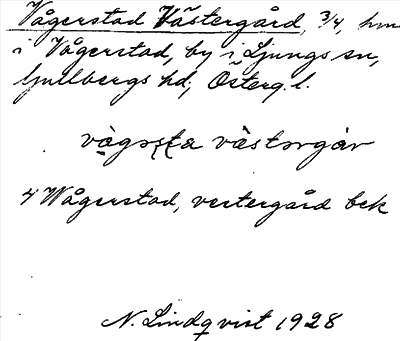 Vågerstad Västergård, 3/4, hmn
i Vågerstad, by i Ljungs sn,
Gullbergs hd, Österg. l.
vàgsta vàstərgar
4 Wågerstad, vestergård bek
N. Lindqvist 1928